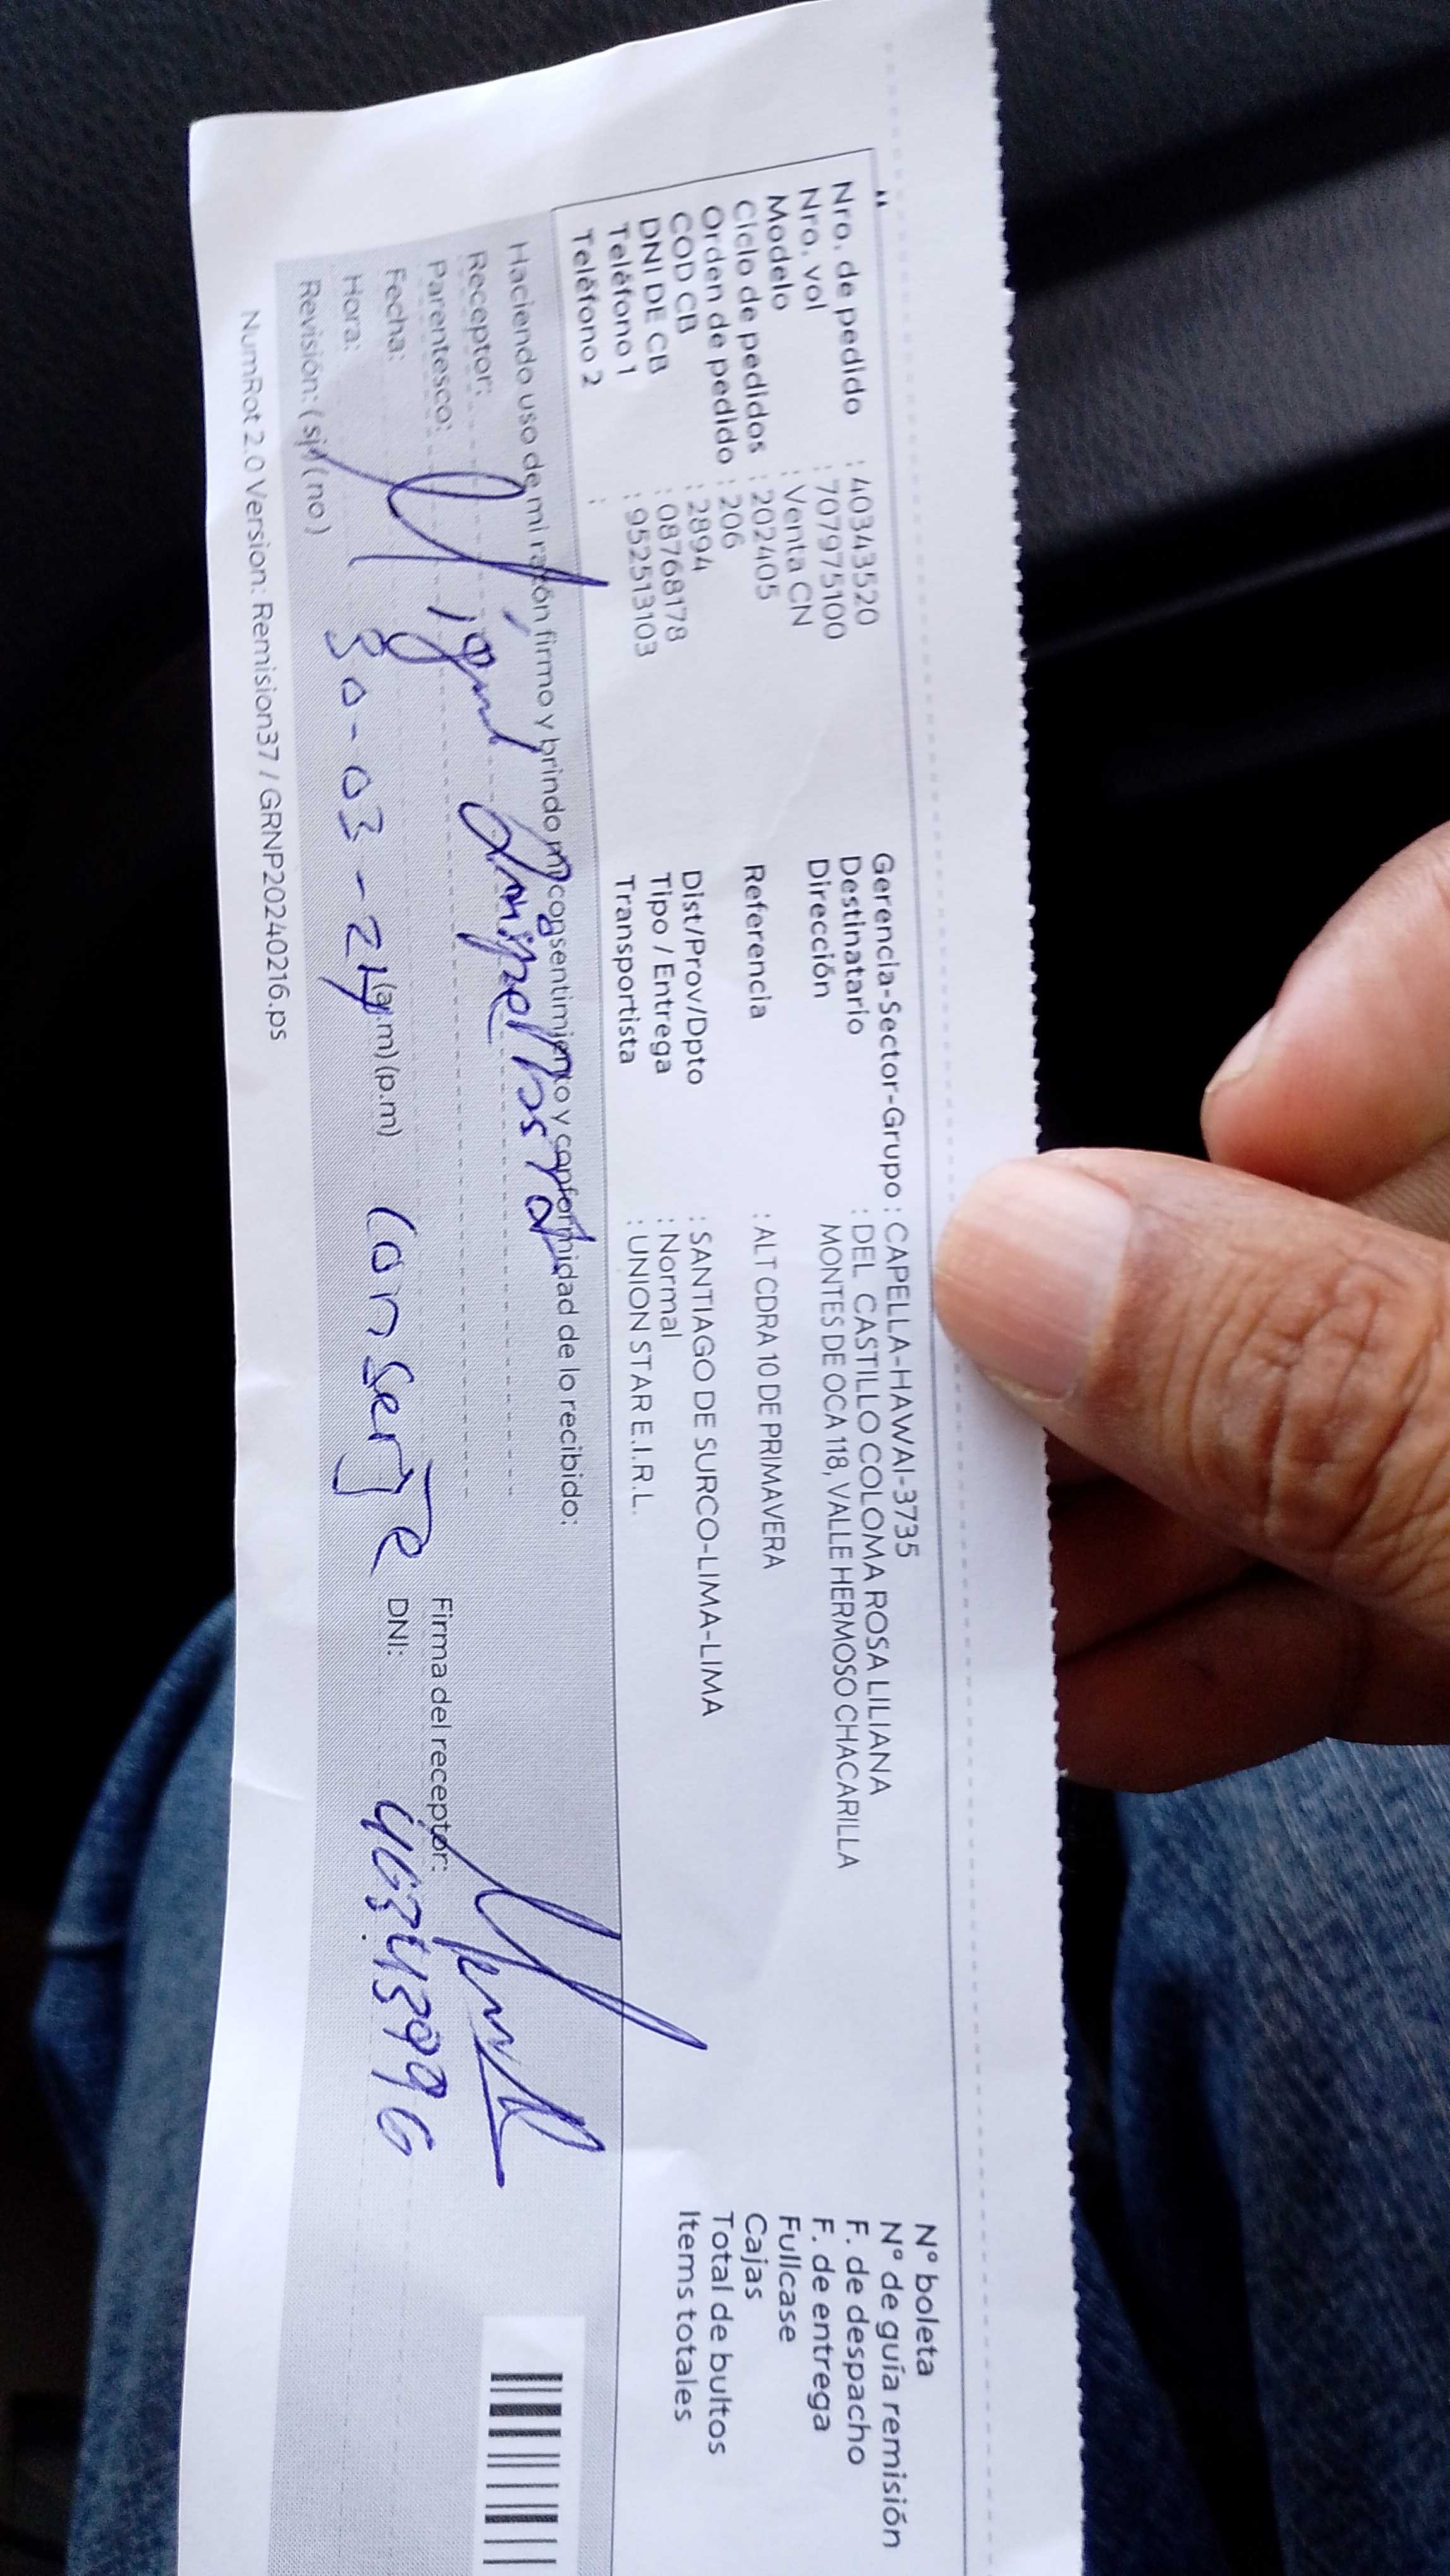 Nro. de pedido : 40343520
Nro. vol : 707975100
Modelo : Venta CN
Ciclo de pedidos : 202405
Orden de pedido : 206
COD CB : 2894
DNI DE CB : 08768178
Teléfono 1 : 952513103
Teléfono 2 :
Gerencia-Sector-Grupo : CAPELLA-HAWAI-3735
Destinatario : DEL CASTILLO COLOMA ROSA LILIANA
Dirección MONTES DE OCA 118, VALLE HERMOSO CHACARILLA
Referencia : ALT CDRA 10 DE PRIMAVERA
Dist/Prov/Dpto : SANTIAGO DE SURCO-LIMA-LIMA
Tipo / Entrega : Normal
Transportista : UNION STAR E.I.R.L.
N° boleta
N° de guía remisión
F. de despacho
F. de entrega
Fullcase
Cajas
Total de bultos
Items totales
Haciendo uso de mi razón firmo y brindo mi consentimiento y conformidad de lo recibido:
Receptor: Miguel
Parentesco:
Fecha: 30-03-24
Hora: (a.m) (p.m) Conserje
Revisión: (si) (no)
Firma del receptor:
DNI:
NumRot 2.0 Version: Remision37 / GRNP20240216.ps